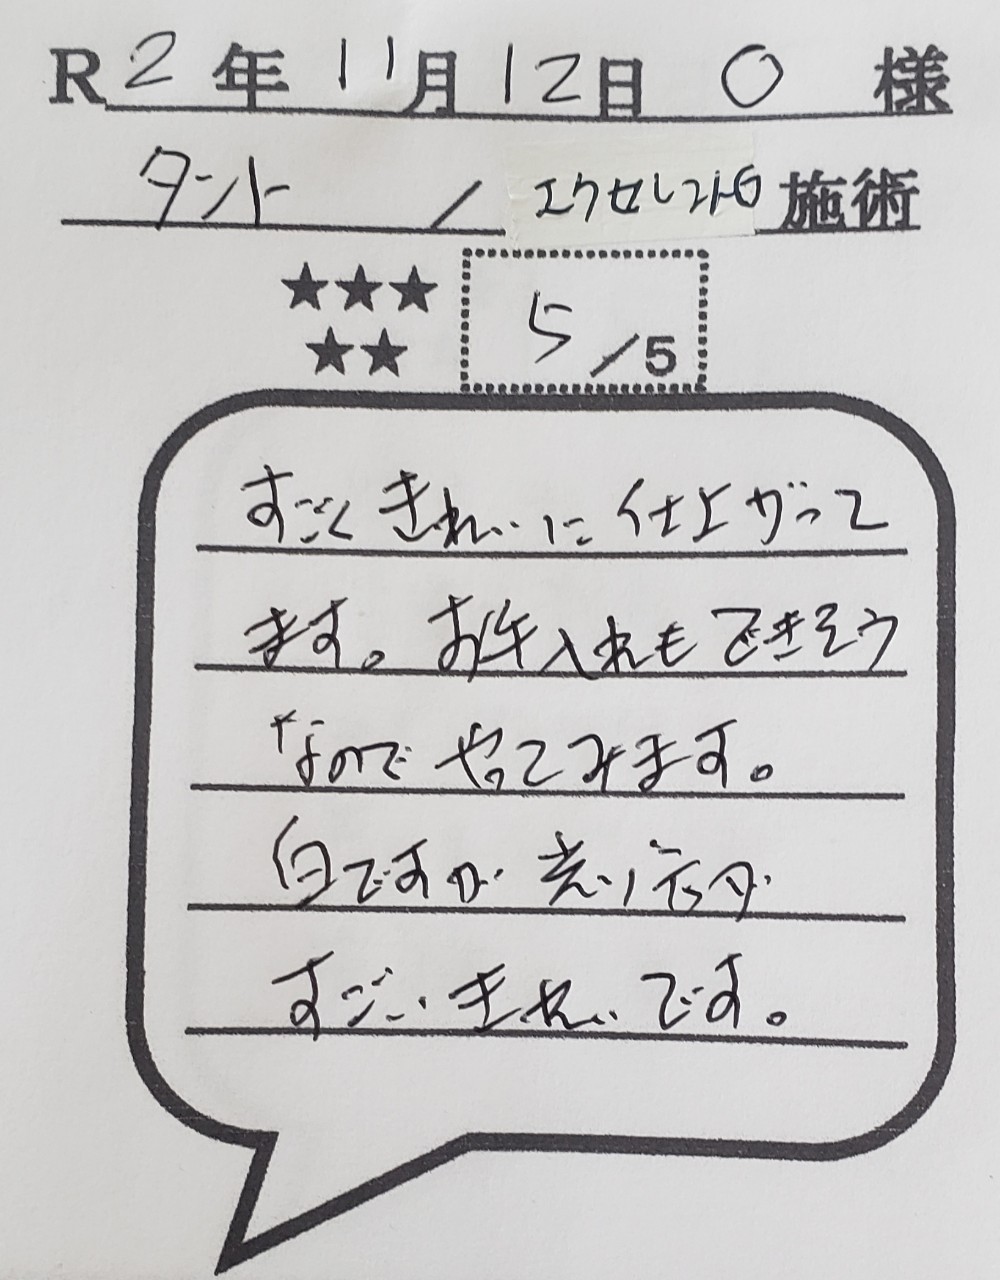 R2年11月12日 O 様
タント / エクセレントG 施術
★★★
★★
5/5
すごくきれいに仕上がって
ます。お手入れもできそう
なのでやってみます。
白ですが光り方が
すごいきれいです。